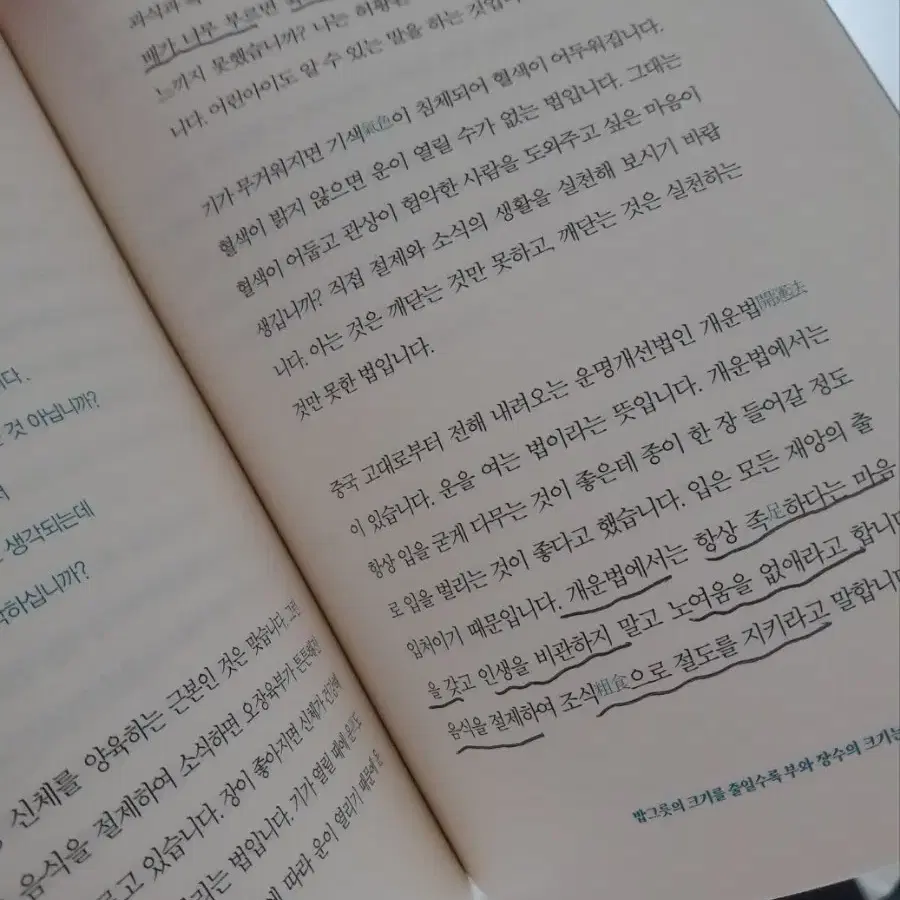 니다.
것 아닙니까?
생각되는데
하십니까?
신체를 양육하는 근본인 것은 맞습니다. 그런
음식을 절제하여 소식하면 오장육부가 튼튼해진
고 있습니다. 장이 좋아지면 신체가 건강해
리는 법입니다. 기가 열릴 때에
에 따라 운이 열리기 때문에
과식과
배가 너무 부르면
느끼지 못했습니까? 나는 허황된
니다. 어린아이도 알 수 있는 말을 하는 것입니
기가 무거워지면 기색氣色이 침체되어 혈색이 어두워집니다.
혈색이 밝지 않으면 운이 열릴 수가 없는 법입니다. 그대는
혈색이 어둡고 관상이 험악한 사람을 도와주고 싶은 마음이
생깁니까? 직접 절제와 소식의 생활을 실천해 보시기 바랍
니다. 아는 것은 깨닫는 것만 못하고, 깨닫는 것은 실천하는
것만 못한 법입니다.
중국 고대로부터 전해 내려오는 운명개선법인 개운법開運法
이 있습니다. 운을 여는 법이라는 뜻입니다. 개운법에서는
항상 입을 굳게 다무는 것이 좋은데 종이 한 장 들어갈 정도
로 입을 벌리는 것이 좋다고 했습니다. 입은 모든 재앙의 출
입처이기 때문입니다. 개운법에서는 항상 족足하다는 마음
을 갖고 인생을 비관하지 말고 노여움을 없애라고 합니다
음식을 절제하여 조식粗食으로 절도를 지키라고 말합니다
밥그릇의 크기를 줄일수록 부와 장수의 크기는